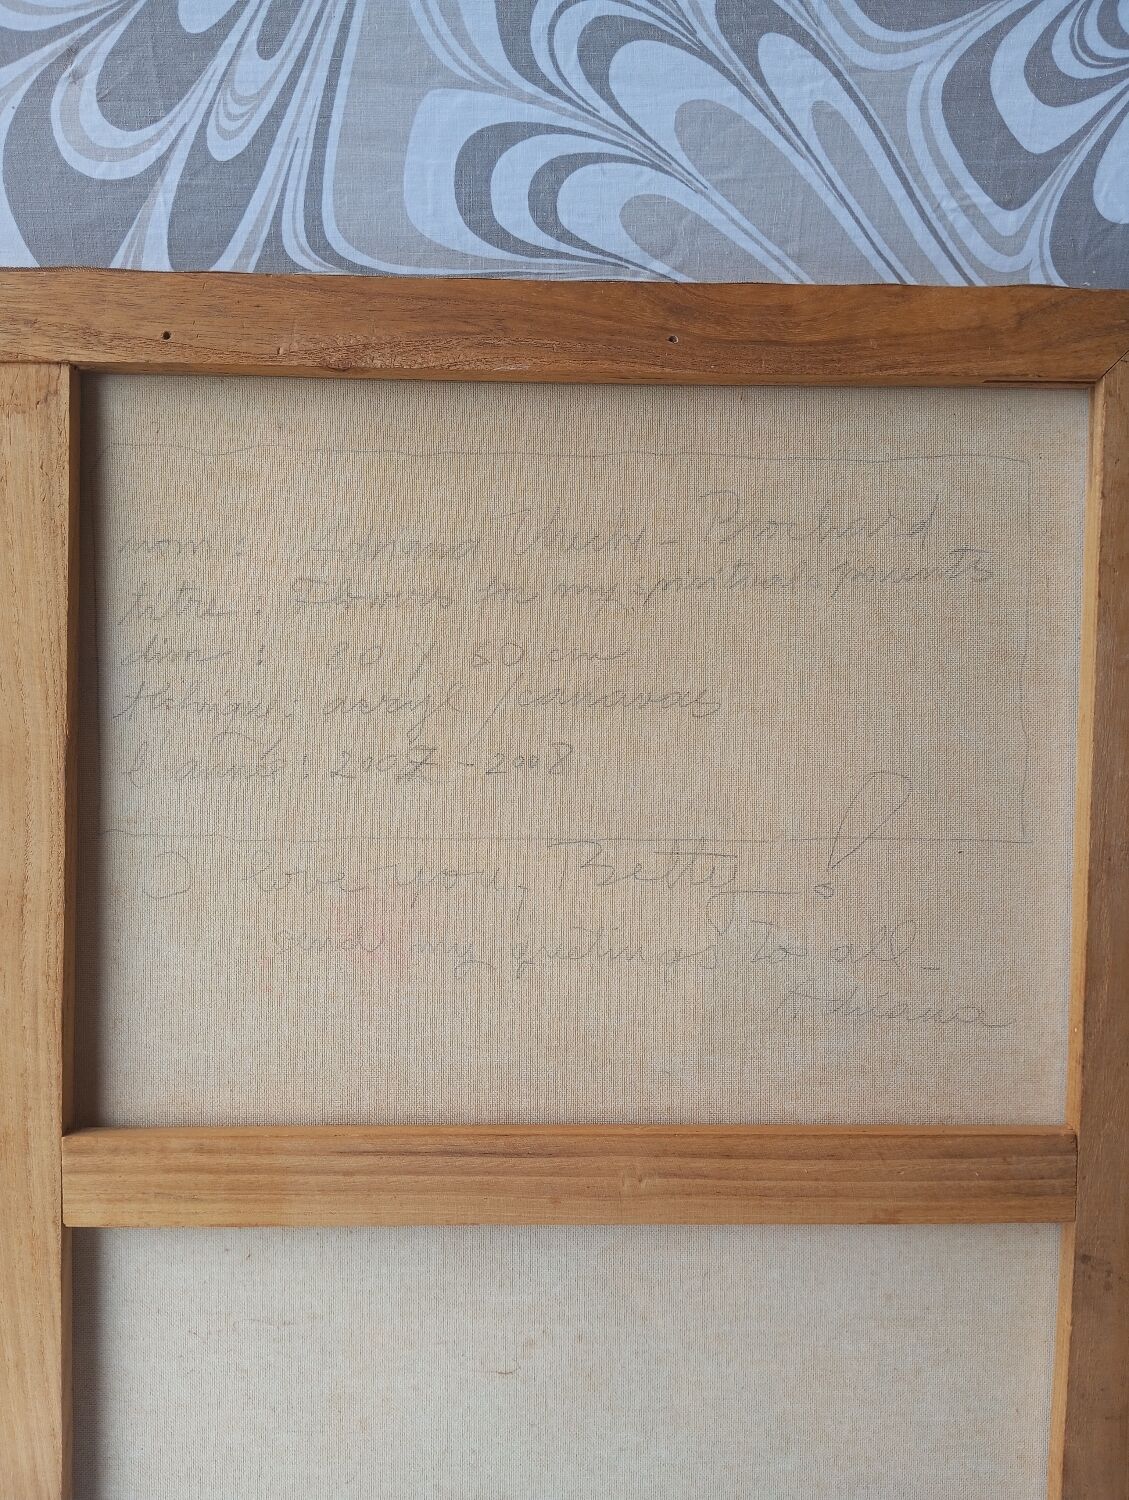 nom : Adriana - Brochard
titre : Flowers for my spirituals parents
dim : 80 / 60 cm
téchnique : acryl / canavas
l'année : 2007 - 2008
I love you, Betty !
send my greetings to all -
Adriana